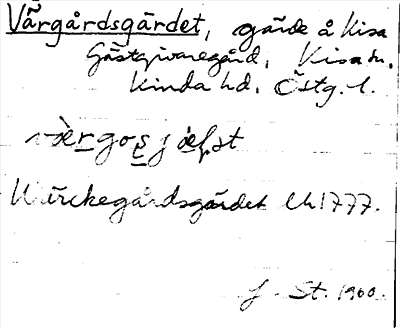 Värgårdsgärdet, gärde å Kisa
Gästgivaregård, Kisa sn,
Kinda hd. Östg. l.
vàrgosjæʈst
Wärckegårdsgärdet Lh 1777.
J. St. 1960.